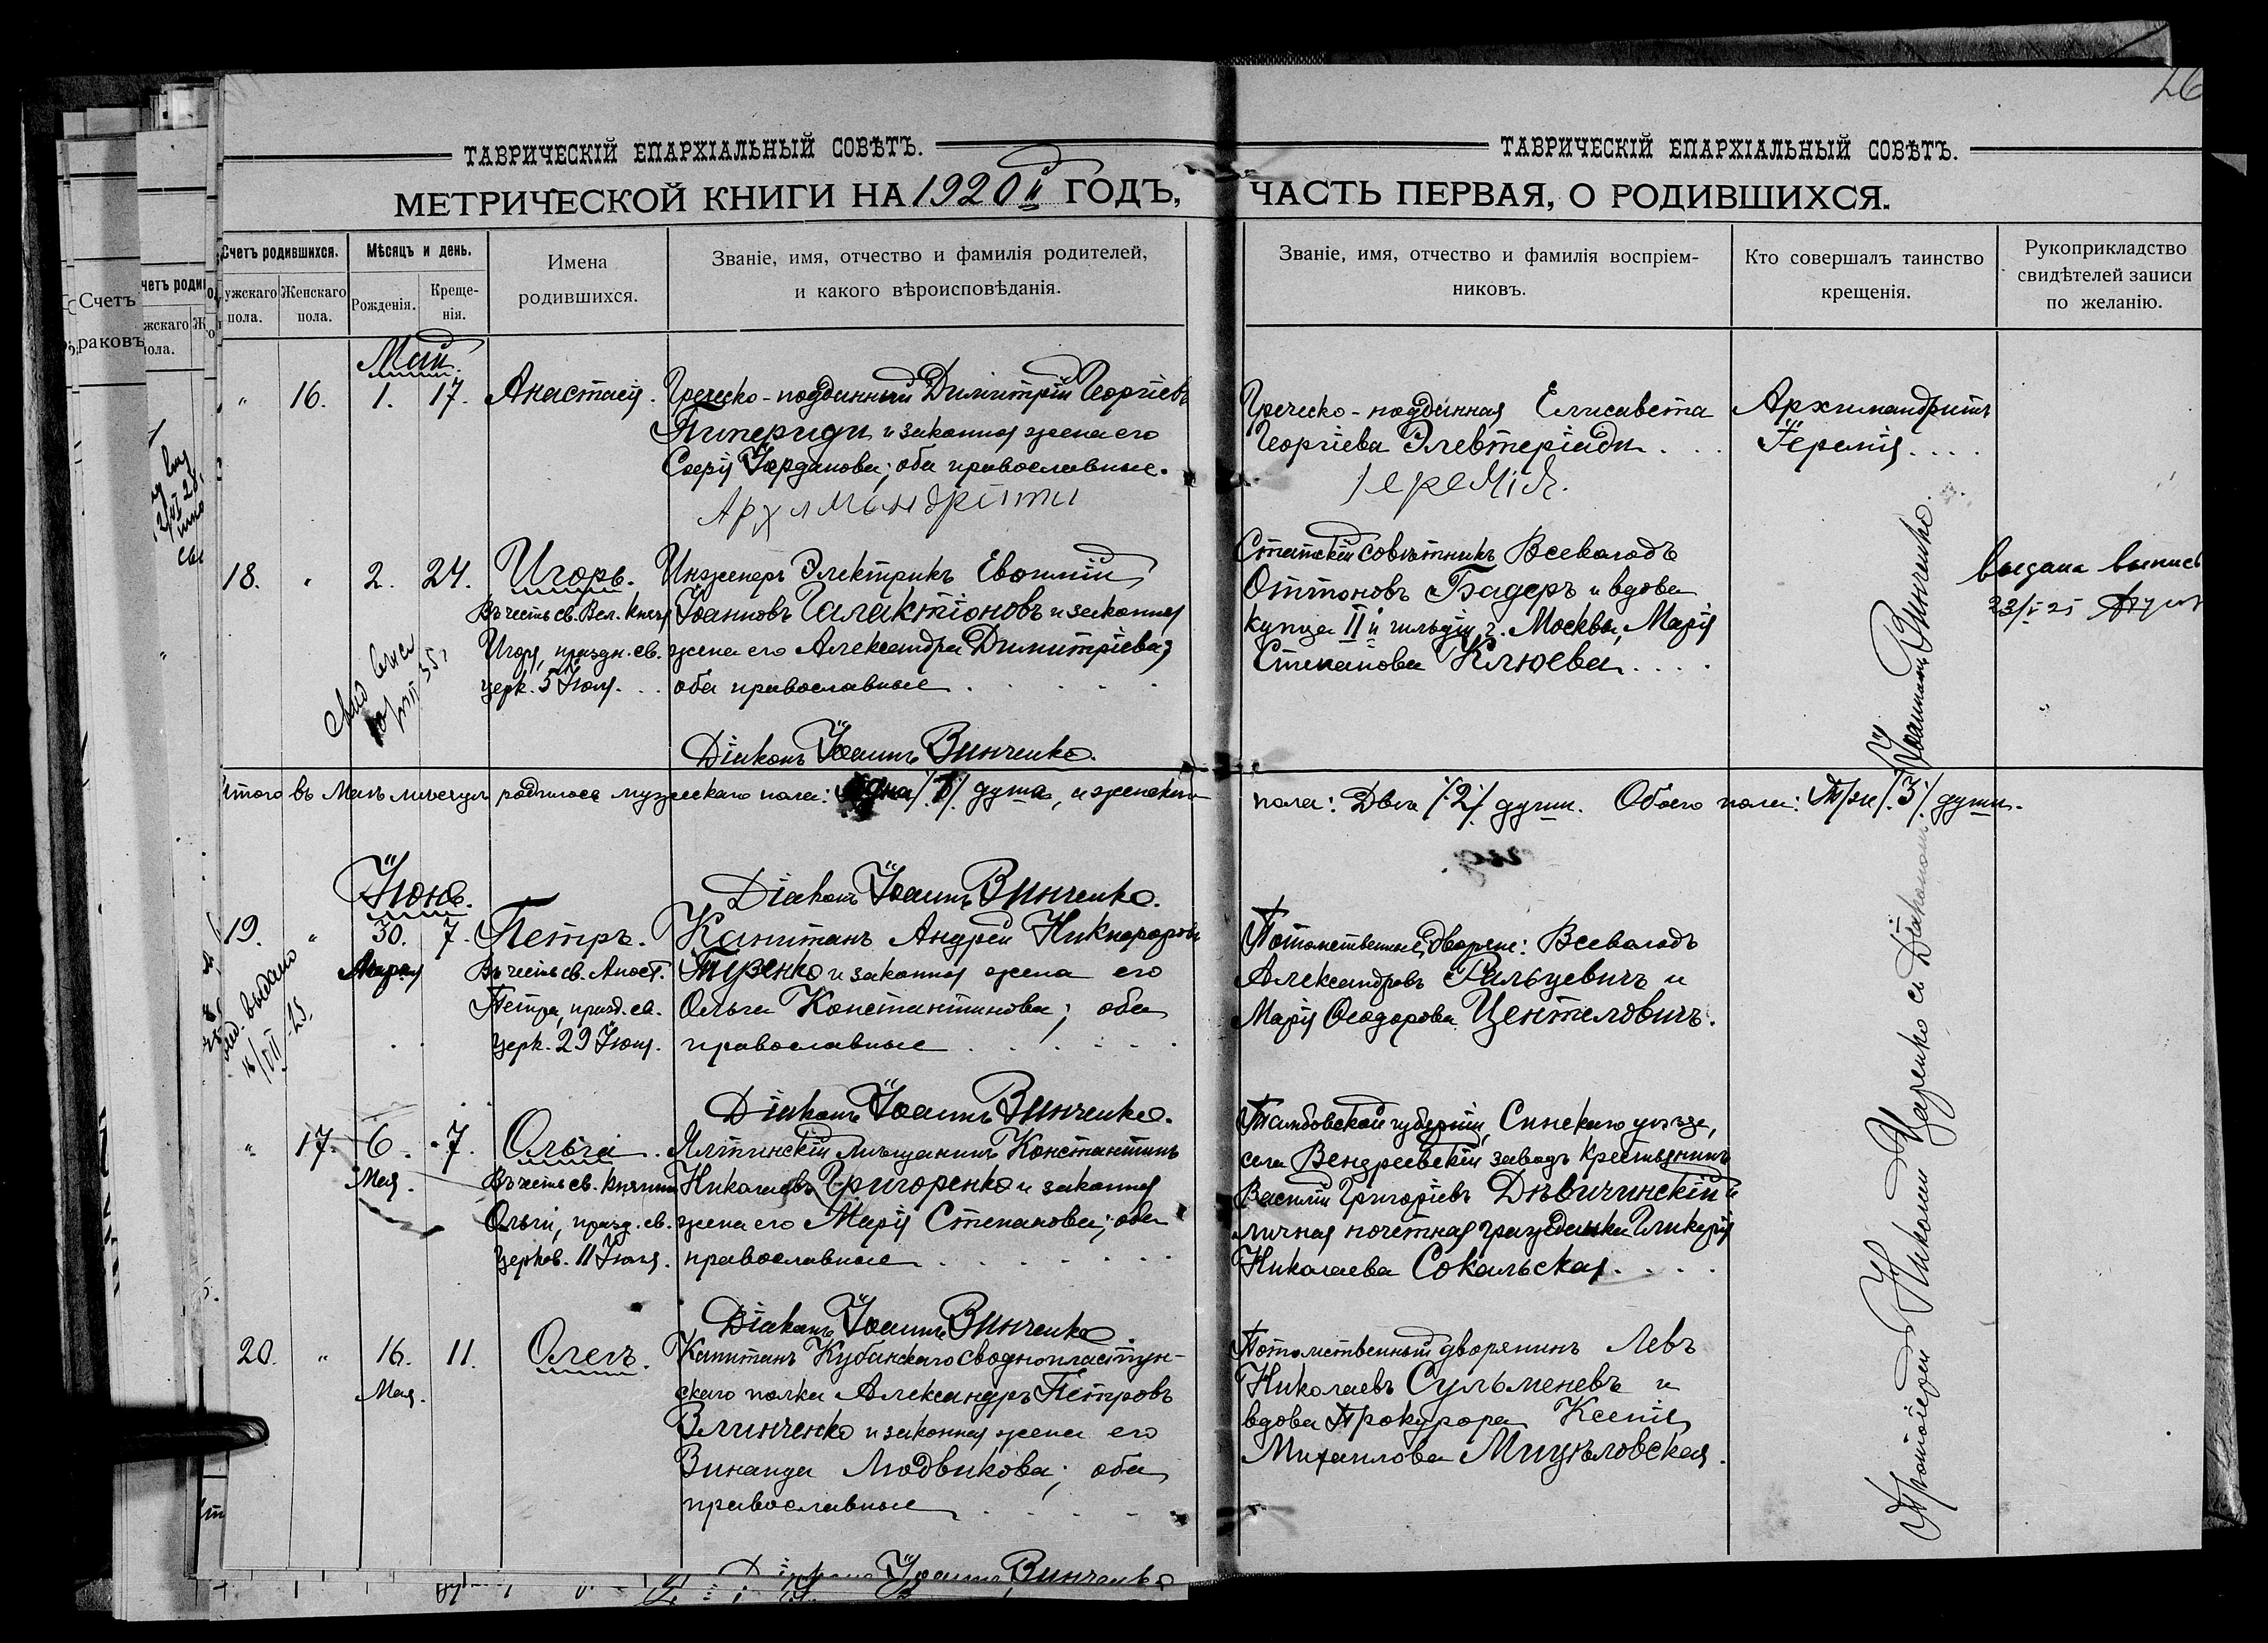 26
ТАВРИЧЕСКІЙ ЕПАРХІАЛЬНЫЙ СОВѢТЪ.
МЕТРИЧЕСКОЙ КНИГИ НА 1920й ГОДЪ,
Счетъ родившихся.
Мѣсяцъ и день.
Имена родившихся.
Званіе, имя, отчество и фамилія родителей,
и какого вѣроисповѣданія.
ужскаго пола.
Женскаго пола.
Рожденія.
Креще-
нія.
Май.
" 16. 1. 17. Анастасія.
Греческо-подданный Димитрій Георгіевъ
Пипериди и законная жена его
Софія Іорданова; оба православные.
Архимандритъ
18. " 2. 24. Игорь.
Въ честь св. Вел. Князя
Игоря, праздн. св.
церк. 5 Іюня.
Инженеръ Электрикъ Евфимій
Іоанновъ Галактіоновъ и законная
жена его Александра Димитріева;
оба православные
Діаконъ Іоаннъ Винченко.
Итого въ Маѣ мѣсяцѣ родилося мужескаго пола: одна /1/ душа, и женскаго
Діаконъ Іоаннъ Винченко.
Іюнь.
19. " 30. 7. Петръ.
Марта
Въ честь св. Апост.
Петра, празд. св.
церк. 29 Іюня.
выдано
Капитанъ Андрей Никифоровъ
и законная жена его
Ольга Константинова; оба
православные
Діаконъ Іоаннъ Винченко.
" 17. 6. 7. Ольга.
Мая.
Въ честь св. Княгини
Ольги, празд. св.
церков. 11 Іюля.
Ялтинскій мѣщанинъ Константинъ
Николаевъ Григоренко и законная
жена его Марія Степанова; оба
православные
Діаконъ Іоаннъ Винченко
20. " 16. 11. Олегъ.
Мая.
Капитанъ Кубанскаго сводно пластун-
скаго полка Александръ Петровъ
Влинченко и законная жена его
Зинаида Людвикова; оба
православные
Діаконъ Іоаннъ Винченко
ТАВРИЧЕСКІЙ ЕПАРХІАЛЬНЫЙ СОВѢТЪ.
ЧАСТЬ ПЕРВАЯ, О РОДИВШИХСЯ.
Званіе, имя, отчество и фамилія воспріем-
никовъ.
Кто совершалъ таинство
крещенія.
Рукоприкладство
свидѣтелей записи
по желанію.
Греческо-подданная Елисавета
Георгіева Элевтеріади
Іеремія.
Архимандритъ
Іеремія
Статскій совѣтникъ Всеволодъ
Оттоновъ Бадеръ и вдова
купца II й гильдіи г. Москвы, Марія
Степанова Клюева
выдана выпись
пола: Двѣ /2/ души. Обоего пола: Три /3/ души.
Потомственные дворяне: Всеволодъ
Александровъ Гильцевичъ и
Марія Ѳеодорова Центиловичъ.
Тамбовской губерніи, уѣзда,
села заводъ крестьянинъ
Василій Григоріевъ Дѣвичинскій и
личная почетная гражданка Гликерія
Николаева Сокальская.
Потомственный дворянинъ Левъ
Николаевъ Сульменевъ и
вдова Прокурора Ксенія
Михаилова
Протоіерей Николай Царенко съ Діакономъ
Іоанномъ Винченко.
Счетъ
раковъ